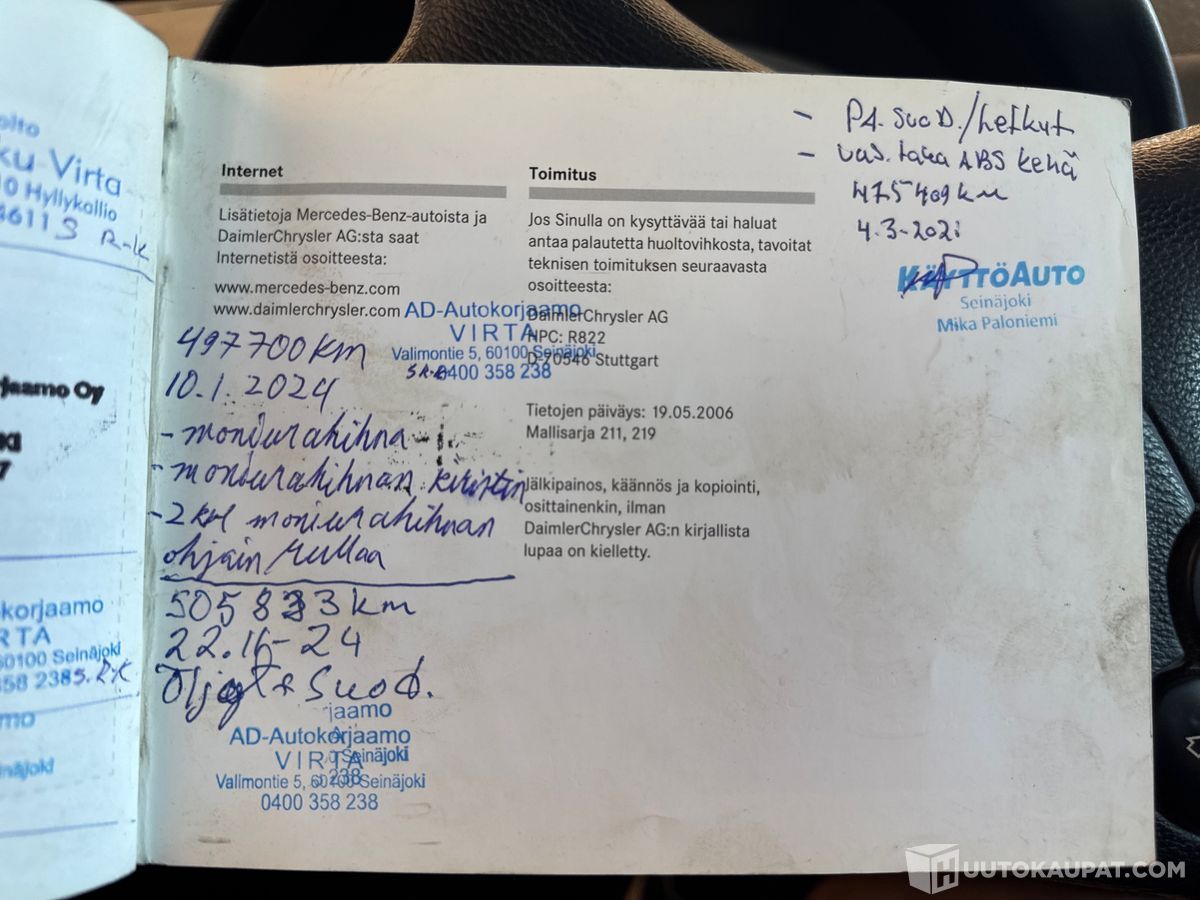 olto
ku Virta
0 Hyllykallio
46113 R-K
jaamo Oy
7
okorjaamo
RTA
60100 Seinäjoki
358 238 S.R-K
mo
näjoki
Internet
Lisätietoja Mercedes-Benz-autoista ja
DaimlerChrysler AG:sta saat
Internetistä osoitteesta:
www.mercedes-benz.com
www.daimlerchrysler.com
AD-Autokorjaamo
VIRTA
Valimontie 5, 60100 Seinäjoki
0400 358 238
497700 km
10.1.2024
- moniurahihna
- moniurahihnan kiristin
- 2 kpl moniurahihnan
ohjain rullaa
505833 km
Öljyt + Suod.
jaamo
AD-Autokorjaamo
VIRTA
Seinäjoki
Valimontie 5, 60100 Seinäjoki
238
0400 358 238
Toimitus
Jos Sinulla on kysyttävää tai haluat
antaa palautetta huoltovihkosta, tavoitat
teknisen toimituksen seuraavasta
osoitteesta:
DaimlerChrysler AG
HPC: R822
D-70546 Stuttgart
Tietojen päiväys: 19.05.2006
Mallisarja 211, 219
Jälkipainos, käännös ja kopiointi,
osittainenkin, ilman
DaimlerChrysler AG:n kirjallista
lupaa on kielletty.
- PA. SuoD./Letkut
- Vas. taka ABS kehä
475409 km
4.3-2021
KÄYTTÖAUTO
Seinäjoki
Mika Paloniemi
HUUTOKAUPAT.COM